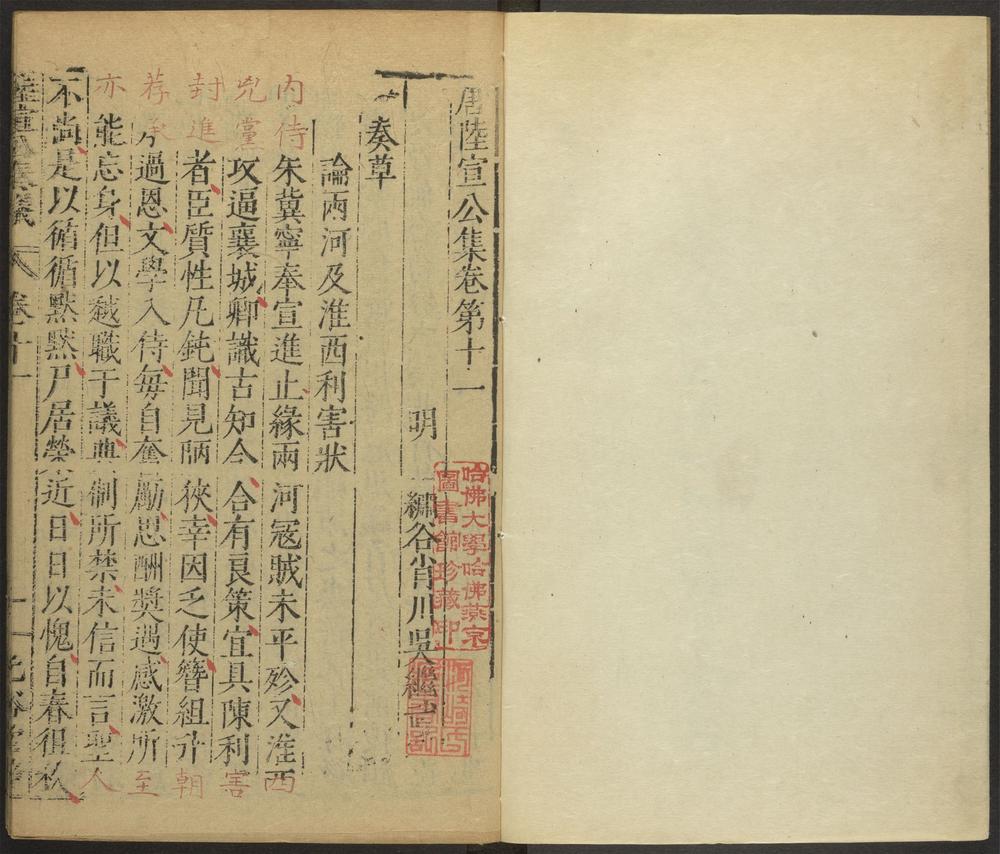 唐陸宣公集卷第十一
明 繡谷肖川吳繼
奏草
論兩河及淮西利害狀
內侍朱冀寧奉宣進止緣兩河寇賊未平殄又淮西
兇黨攻逼襄城卿識古知今合有良策宜具陳利害
封進者臣質性凡鈍聞見陋狹幸因乏使簪組升朝
荐承過恩文學入侍每自奮勵思酬獎遇感激所至
亦能忘身但以越職干議典制所禁未信而言聖人
不尚是以循循默默尸居榮近日日以愧自春徂秋
卷十一
哈佛大學哈佛燕京
圖書館珍藏印